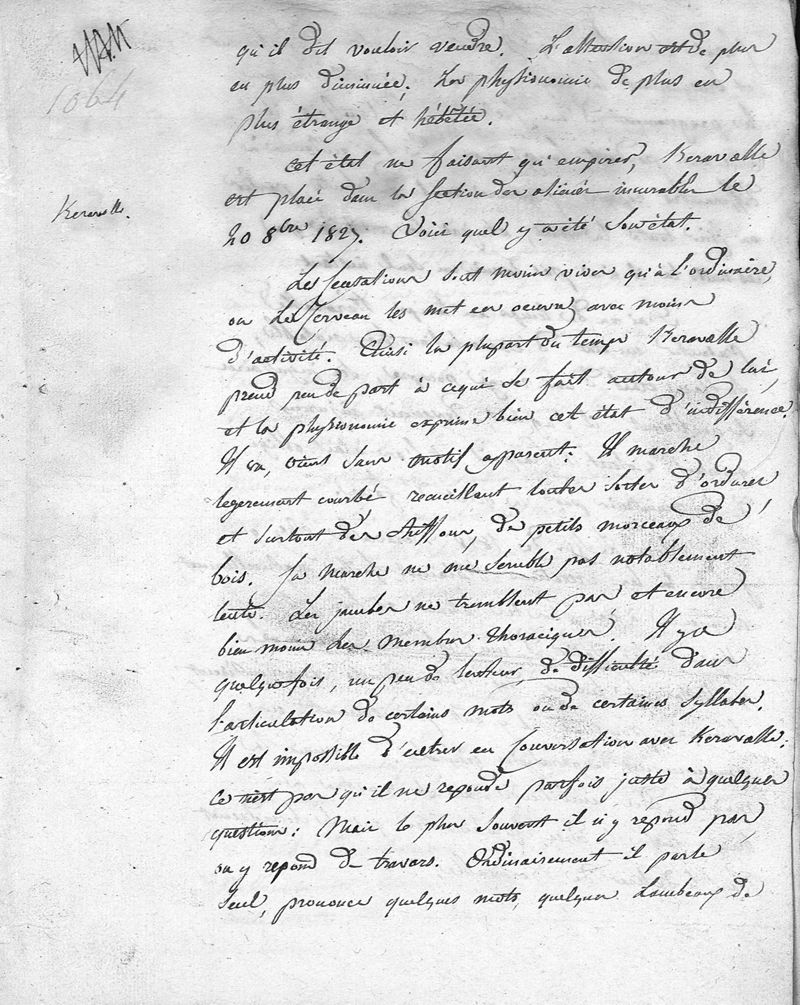 1064
qu'il dit vouloir vendre. L'attention est de plus
en plus diminuée, La physionomie de plus en
plus étrange et hébétée.
Cet état ne faisant qu'empirer, Keravalle
est placé dans la Section des aliénés incurables le
20 8bre 1827. Voici quel y a été son état.
Keravalle.
Les sensations sont moins vives qu'à l'ordinaire,
ou le Cerveau les met en oeuvre avec moins
d'activité. Ainsi la plupart du temps Keravalle
prend peu de part à ce qui se fait autour de lui,
et la physionomie exprime bien cet état d'indifférence.
Il va, vient sans motif apparent. Il marche
legerement courbé recueillant toutes sortes d'ordures
et surtout des chiffons, de petits morceaux de
bois. Sa marche ne me semble pas notablement
lente. Les jambes ne tremblent pas et encore
bien moins les membres Thoraciques. Il y a
quelquefois, un peu de lenteur de difficulté dans
l'articulation de certains mots ou de certaines syllabes.
Il est impossible d'entrer en Conversation avec Keravalle.
Ce n'est pas qu'il ne reponde parfois juste à quelques
questions: Mais le plus souvent il n'y repond pas,
ou y repond de travers. Ordinairement il parle
seul, prononce quelques mots, quelques Lambeaux de